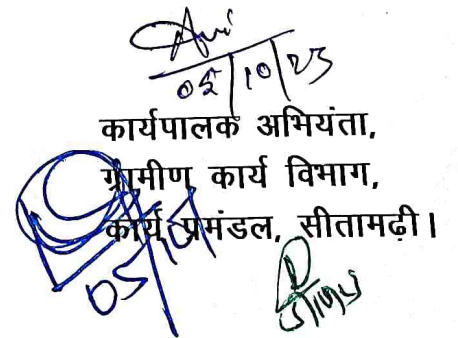 05/10/23
कार्यपालक अभियंता,
ग्रामीण कार्य विभाग,
कार्य प्रमंडल, सीतामढ़ी।